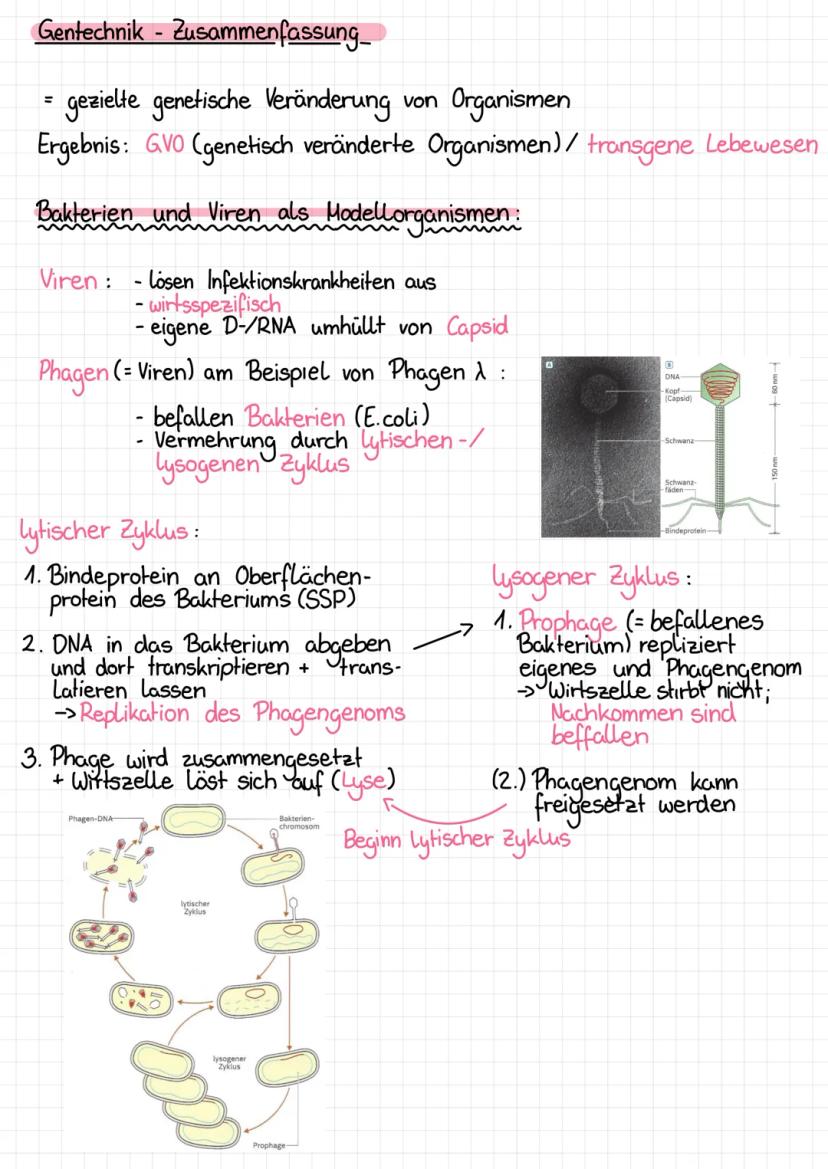 Gentechnik - Zusammenfassung
= gezielte genetische Veränderung von Organismen
Ergebnis: GVO (genetisch veränderte Organismen) / transgene Lebewesen
Bakterien und Viren als Modellorganismen:
Viren: - lösen Infektionskrankheiten aus
- wirtsspezifisch
- eigene D-/RNA umhüllt von Capsid
Phagen (= Viren) am Beispiel von Phagen λ :
- befallen Bakterien (E.coli)
- Vermehrung durch lytischen-/
lysogenen Zyklus
A
B
DNA
Kopf
(Capsid)
Schwanz
Schwanz-
fäden
Bindeprotein
80 nm
150 nm
lytischer Zyklus:
1. Bindeprotein an Oberflächen-
protein des Bakteriums (SSP)
2. DNA in das Bakterium abgeben
und dort transkriptieren + trans-
latieren lassen
-> Replikation des Phagengenoms
3. Phage wird zusammengesetzt
+ Wirtszelle löst sich auf (Lyse)
lysogener Zyklus:
1. Prophage (= befallenes
Bakterium) repliziert
eigenes und Phagengenom
-> Wirtszelle stirbt nicht;
Nachkommen sind
beffallen
(2.) Phagengenom kann
freigesetzt werden
Beginn lytischer Zyklus
Phagen-DNA
Bakterien-
chromosom
lytischer
Zyklus
lysogener
Zyklus
Prophage